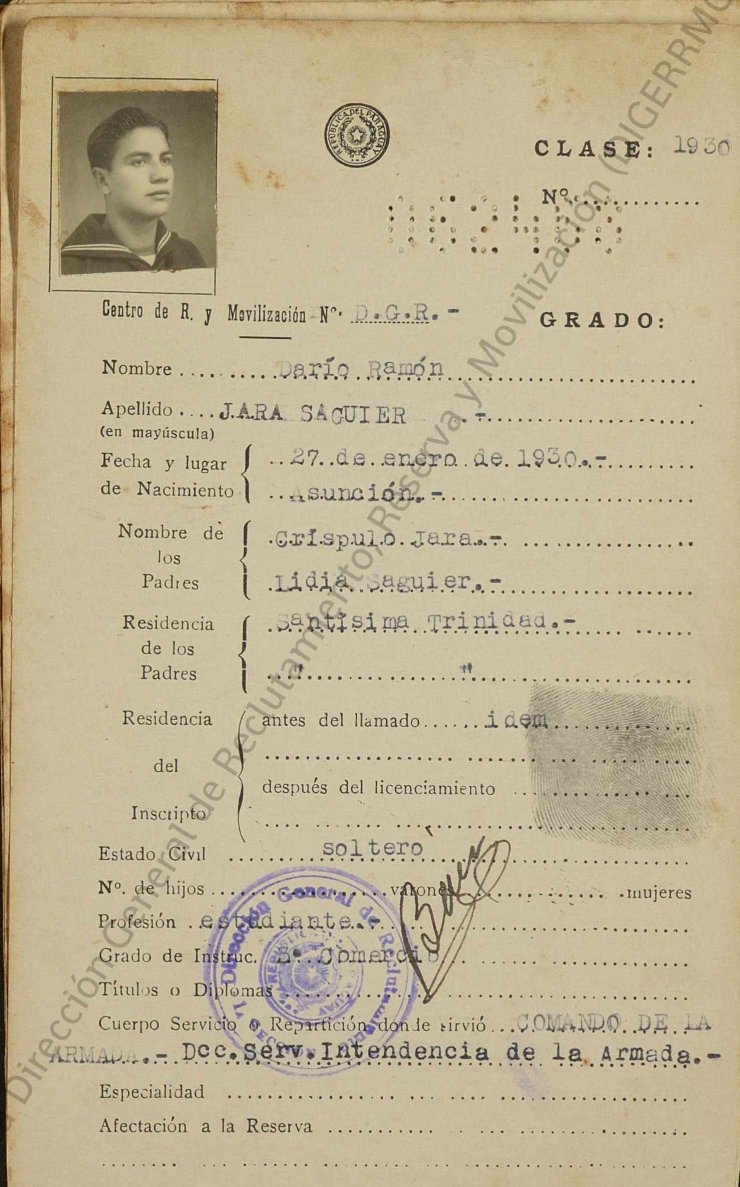 REPUBLICA DEL PARAGUAY
CLASE: 1930
Nº.
Centro de R. y Movilización Nº. D.G.R.-
GRADO:
Nombre Darío Ramón
Apellido JARA SAGUIER .-
(en mayúscula)
Fecha y lugar de Nacimiento 27 de enero de 1930.-
Asunción.-
Nombre de los Padres Críspulo Jara.-
Lidia Saguier.-
Residencia de los Padres Santísima Trinidad.-
" "
Residencia del Inscripto antes del llamado idem
después del licenciamiento
Estado Civil soltero
Nº. de hijos varones mujeres
Profesión estudiante.-
Grado de Instruc. Comercio
Títulos o Diplomas
Cuerpo Servicio o Repartición donde sirvió COMANDO DE LA
ARMADA.- Dcc.Serv.Intendencia de la Armada.-
Especialidad
Afectación a la Reserva
Dirección General de Reclutamiento
Dirección General de Reclutamiento, Reserva y Movilización (DIGERRMO